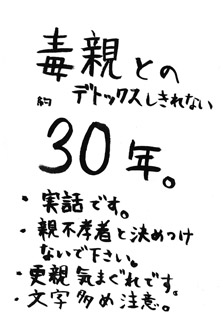 毒親との
約 デトックスしきれない
30年。
・実話です。
・親不孝者と決めつけ
ないで下さい。
・更親気まぐれです。
・文字多め注意。